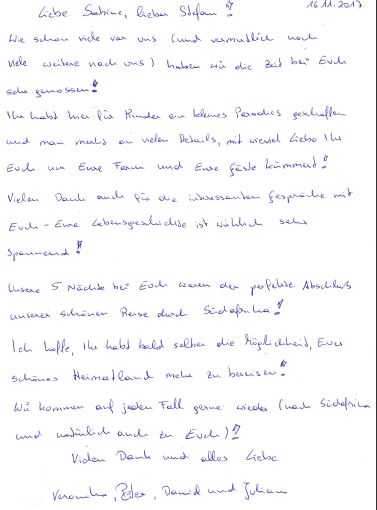 16.11.2017
Liebe Sabine, lieber Stefan!
Wie schon viele vor uns (und vermutlich noch
viele weitere nach uns) haben wir die Zeit bei Euch
sehr genossen!
Ihr habt hier für Kinder ein kleines Paradies geschaffen
und man merkt an vielen Details, mit wieviel Liebe Ihr
Euch um Eure Farm und Eure Gäste kümmert!
Vielen Dank auch für die interessanten Gespräche mit
Euch - Eure Lebensgeschichte ist wirklich sehr
spannend!
Unsere 5 Nächte bei Euch waren der perfekte Abschluss
unserer schönen Reise durch Südafrika!
Ich hoffe, Ihr habt bald selber die Möglichkeit, Euer
schönes Heimatland mehr zu bereisen!
Wir kommen auf jeden Fall gerne wieder (nach Südafrika
und natürlich auch zu Euch)!
Vielen Dank und alles Liebe
Veronika, Peter, David und Julian